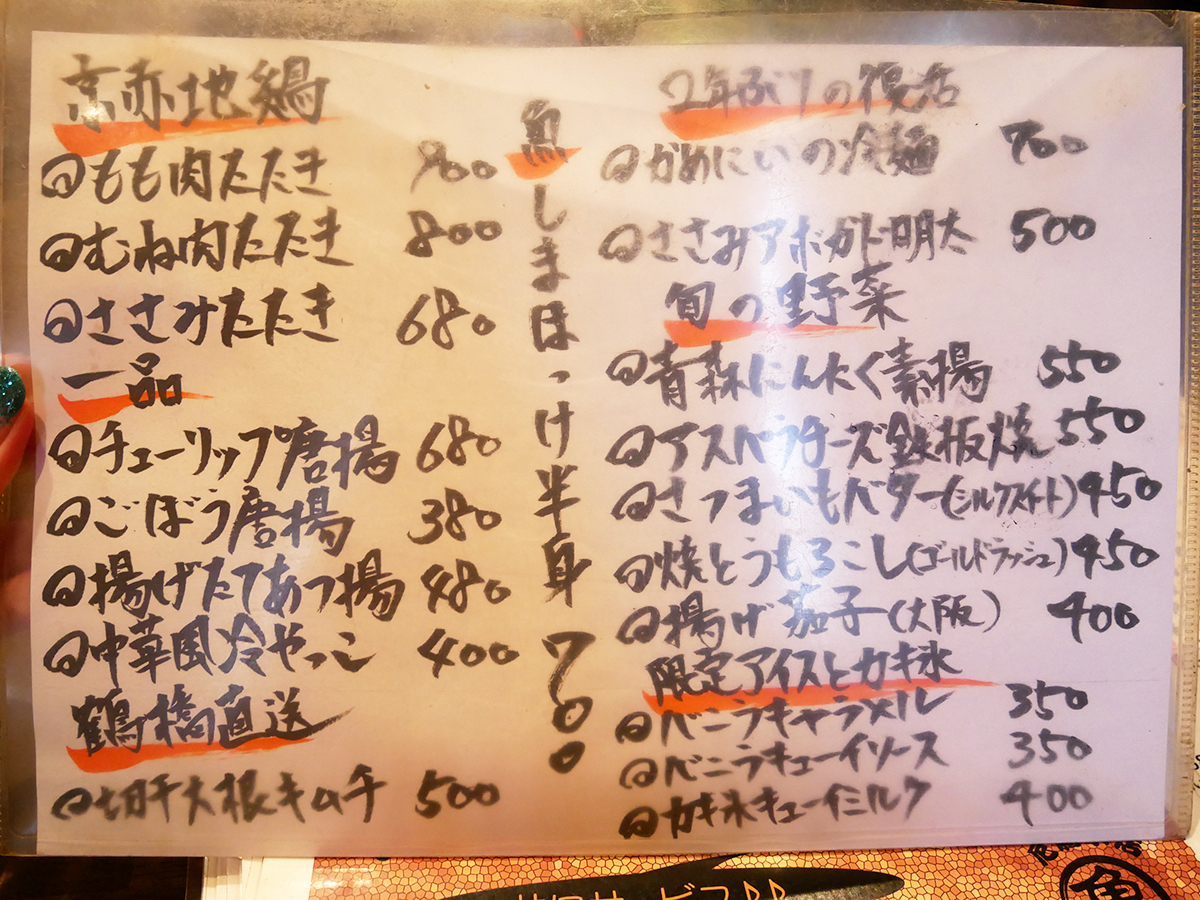 京赤地鶏
もも肉たたき 800
むね肉たたき 800
ささみたたき 680
一品
チューリップ唐揚 680
ごぼう唐揚 380
揚げたてあつ揚 480
中華風冷やっこ 400
鶴橋直送
切干大根キムチ 500
魚しまほっけ半身 700
2年ぶりの復活
かめにいの冷麺 700
ささみアボガド明太 500
旬の野菜
青森にんたく素揚 550
アスパラチーズ鉄板焼 550
さつまいもバター(シルクスイート) 450
焼とうもろこし(ゴールドラッシュ) 450
揚げ茄子(大阪) 400
限定アイスとカキ氷
バニラキャラメル 350
バニラキューイソース 350
カキ氷キューイミルク 400
魚